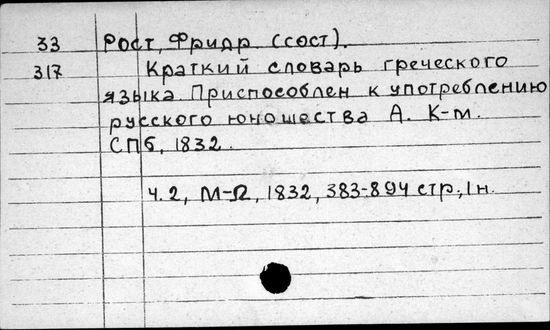 33 Рост, Фридр. (сост).
317 Краткий словарь греческого
языка. Приспособлен к употреблению
русского юношества А. К-м.
СПб, 1832.
Ч. 2, М-Ω, 1832, 383-894 стр, 1 н.